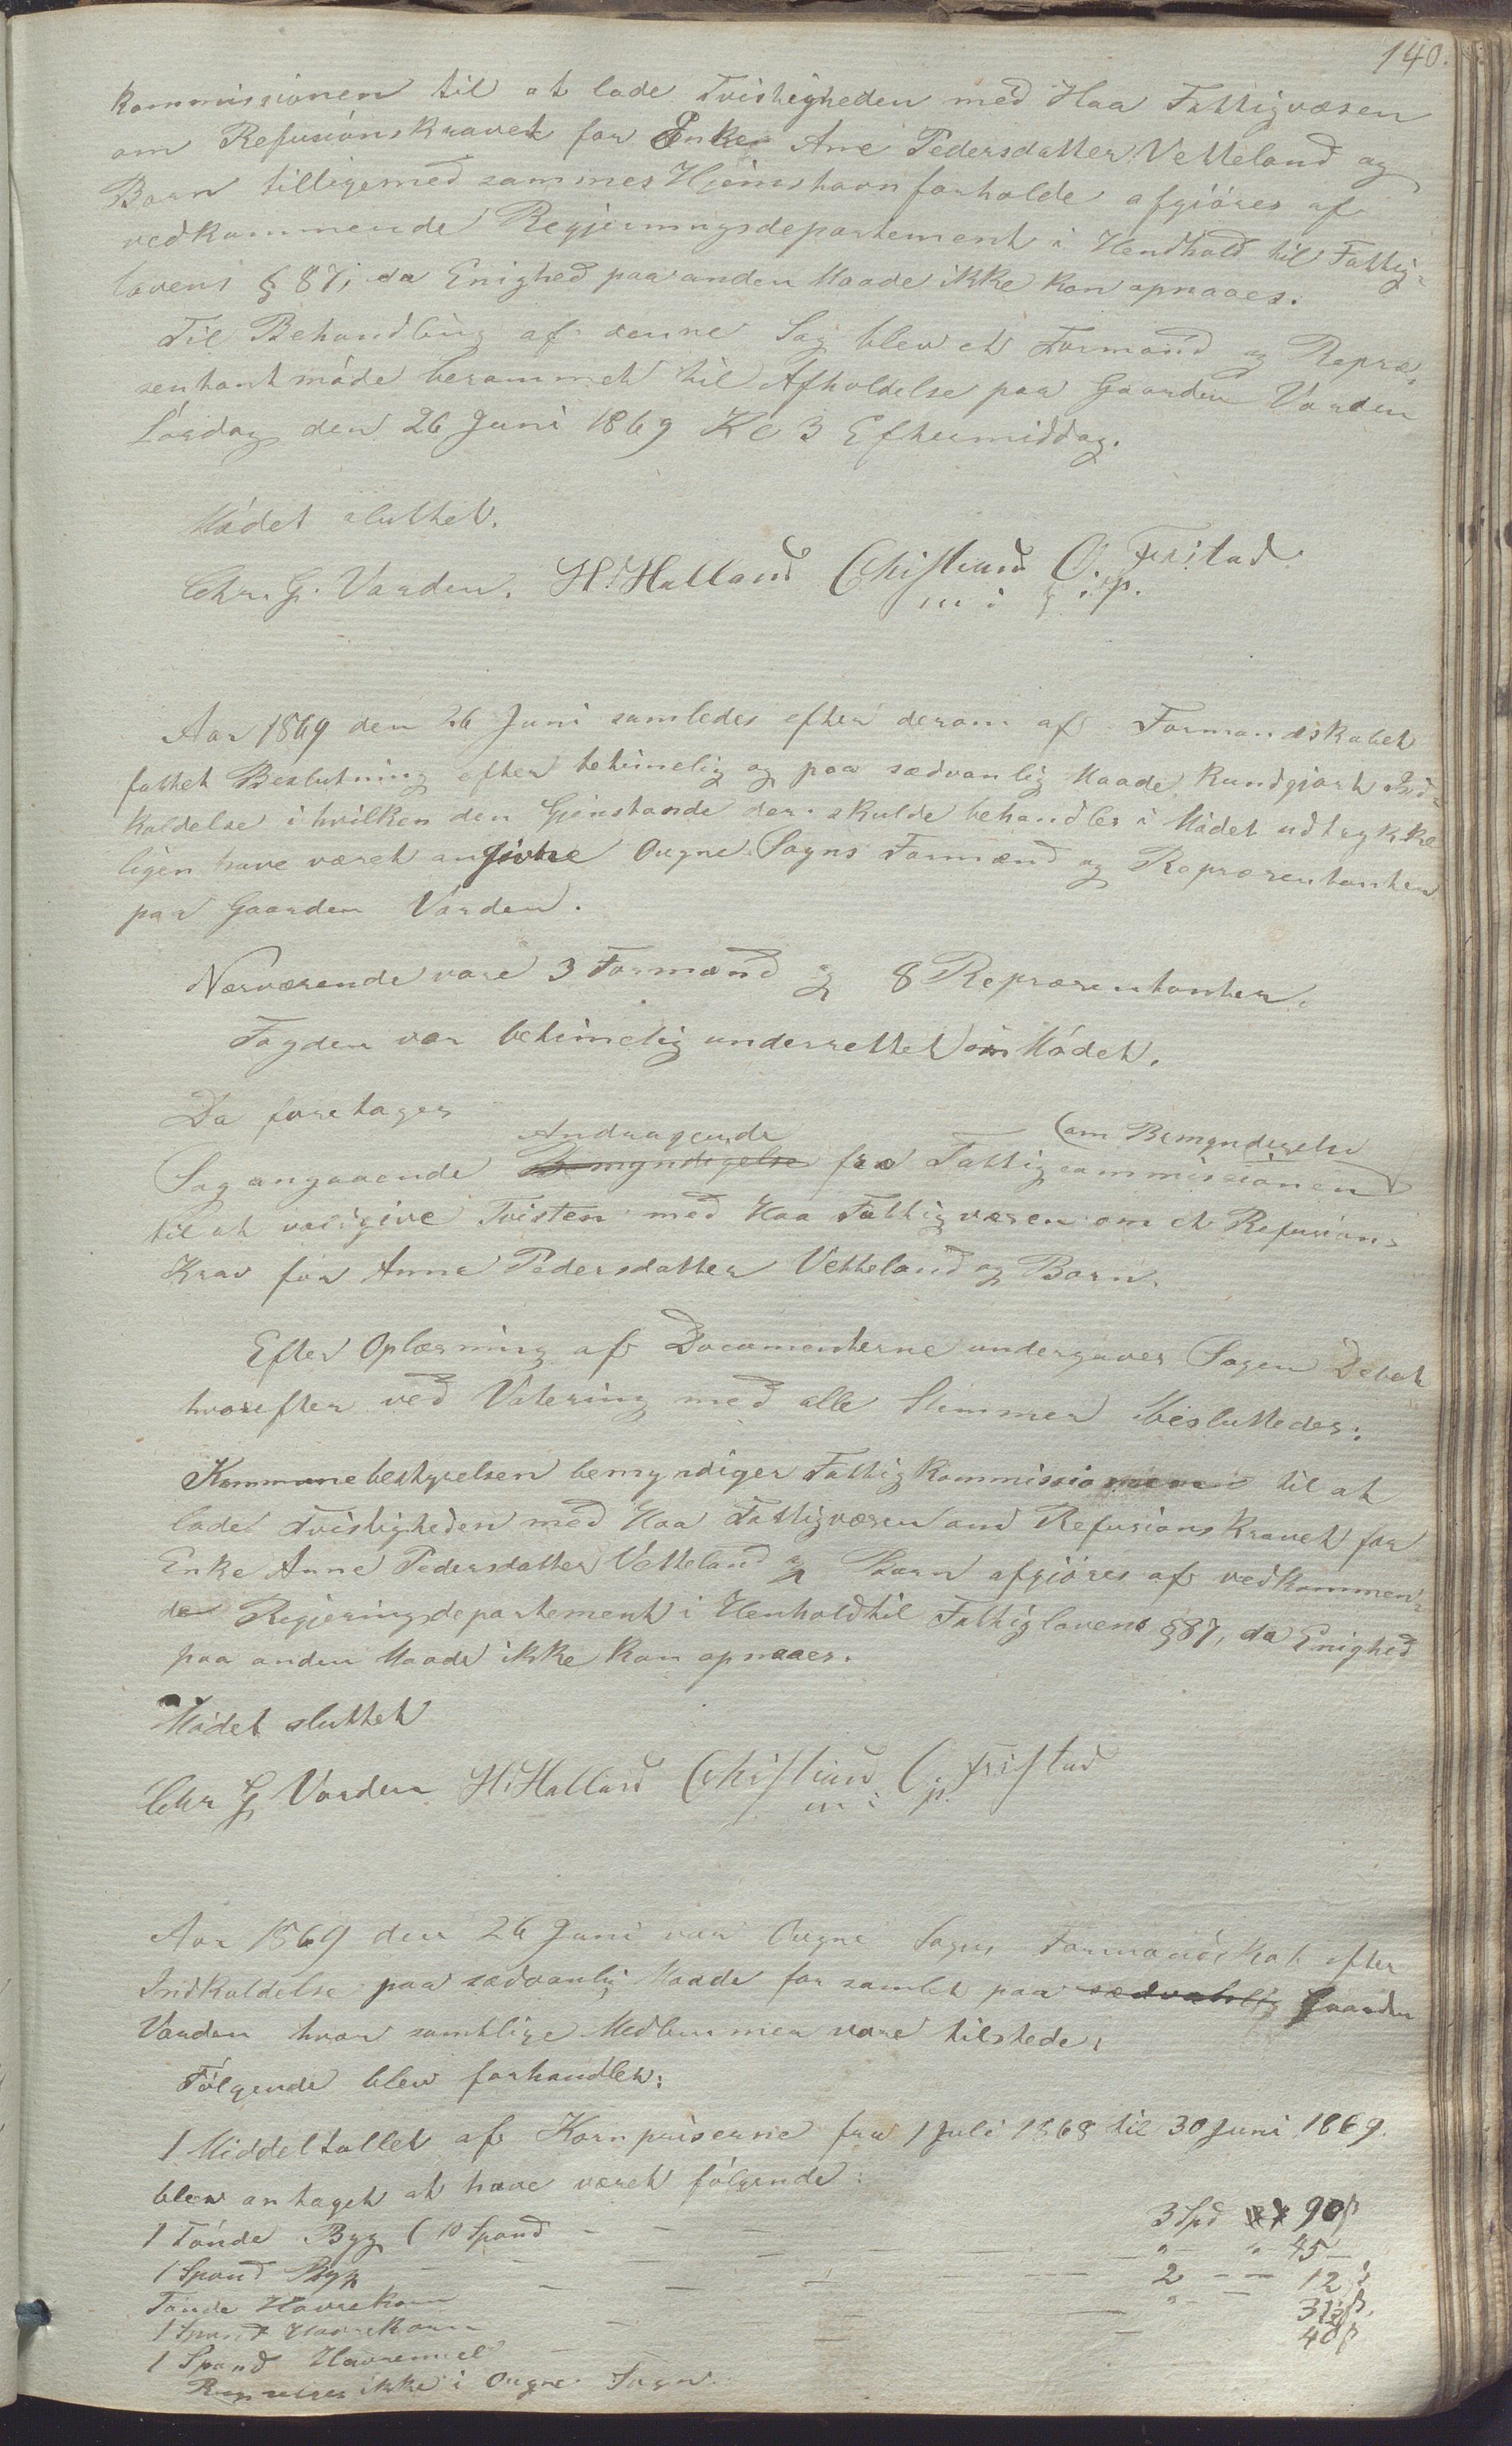 140.
kommissionen til at lade Tvistigheden med Haa Fattigvæsen
om Refusionskravet for Enke Ane Pedersdatter Vetteland og
Børn tilligemed sammes Hjemshavnforholde afgjöres af
vedkommende Regjeringsdepartement i Hendhold til Fattig-
lovens § 87, da Enighed paa anden Maade ikke kan opnaaes.
Til Behandling af denne Sag blev et Formand og Repræ-
sentantmöde berammet til Afholdelse paa Gaarden Varden
Lördag den 26 Juni 1869 Kl 3 Eftermiddag.
Mödet sluttet.
Chr. G. Varden. H. Halland Christian O. Tristad
m i p.
Aar 1869 den 26 Juni samledes efter derom af Formandskabet
fattet Beslutning efter betimelig og paa sædvanlig Maade kundgjort Ind-
kaldelse i hvilken den Gjenstande der skulde behandles i Mödet udtrykke
ligen have været angivne Ougne Sogns Formænd og Repræsentanter
paa Gaarden Varden.
Nærværende vare 3 Formænd og 8 Repræsentanter.
Fogden var betimelig underrettet om Mödet.
Da foretages
Andragende (om Bemyndigelse
Sag angaaende Bemyndigelse fra Fattigcommissionen
til at voldgive Tvisten med Haa Fattigvæsen om et Refusions
Krav for Anne Pedersdatter Vetteland og Børn.
Efter Oplæsning af Documenterne undergaves Sagen Debat
hvorefter ved Votering med alle Stemmer besluttedes:
Kommunebestyrelsen bemyndiger Fattigkommissionen til at
lade Tvistigheden med Haa Fattigvæsen om Refusionskravet for
Enke Anne Pedersdatter Vetteland og Børn afgjöres af vedkommen-
de Regjeringsdepartement i Henhold til Fattiglovens § 87, da Enighed
paa anden Maade ikke kan opnaaes.
Mödet sluttet
Chr G Varden H. Halland Christian O. Tristad
m i p.
Aar 1869 den 26 Juni var Ougne Sogns Formandskab efter
Indkaldelse paa sædvanlig Maade forsamlet paa sædvanlig Gaarden
Varden hvor samtlige Medlemmer vare tilstede.
Fölgende blev forhandlet:
1 Middeltallet af Kornpriserne fra 1 Juli 1868 til 30 Juni 1869.
blev antaget at have været fölgende:
1 Tönde Byg (10 Spand - - - 3 Spd 90 ß
1 Spand Byg - - - - " " 45 -
Tönde Havrekorn - - - 2 - - 12 ß
1 Spand Havrekorn - - - " - 31½ ß.
1 Spand Havremel - - - 40 ß
ikke i Ougne Sogn.